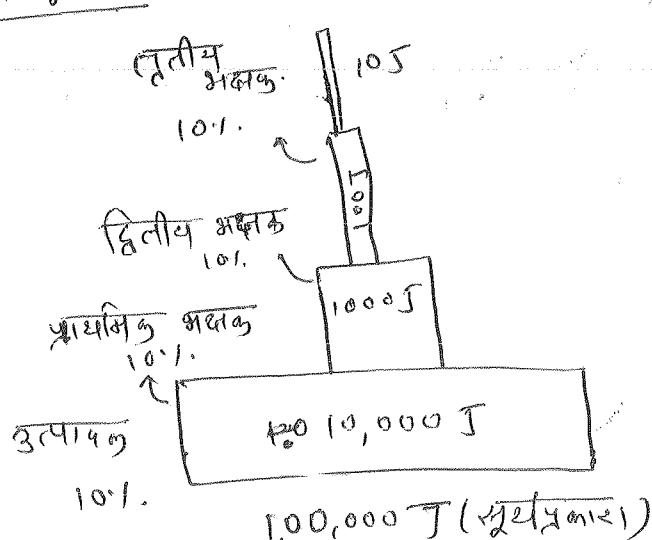 तृतीय
भक्षक.
10%.
10J
100J
द्वितीय भक्षक
10%.
1000J
प्राथमिक भक्षक
10%.
उत्पादक
10%.
10,000 J
1,00,000 J (सूर्यप्रकाश)